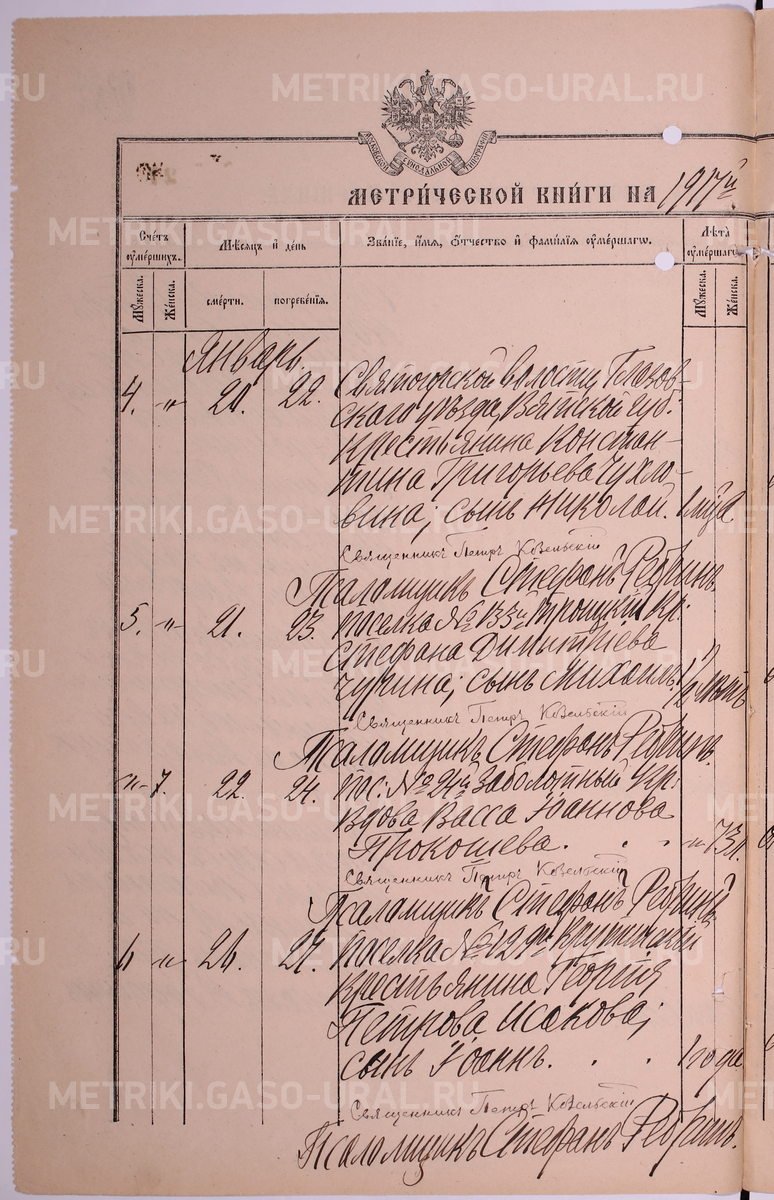 METRIKI.GASO-URAL.RU
МОСКОВСКОЙ СѴНОДАЛЬНОЙ ТИПОГРАФІИ
МЕТРИ́ЧЕСКОЙ КНИ́ГИ НА 1917й
Сче́тъ ᲂу҆ме́ршихъ.
Мѣ́сяцъ и҆ де́нь
Зва́ніе, и҆́мя, ѻ҆́тчество и҆ фами́лія ᲂу҆ме́ршагѡ.
Лѣ́та ᲂу҆ме́ршагѡ.
Мꙋ́жеска.
Же́нска.
сме́рти.
погребе́нїѧ.
Мꙋ́жеска.
Же́нска.
Январь.
4. " 20. 22. Святогорской волости, Глазов-
скаго уѣзда, Вятской губ.
крестьянина Констан-
тина Григорьева Чухло-
вина; сынъ Николай. 1 мца
Священникъ Петръ Козельскій
Псаломщикъ Стефанъ Ребринъ.
5. " 21. 23. Поселка № 133й Троицкій кр:
Стефана Димитріева
Чурина; сынъ Михаилъ. 1/2 лѣтъ
Священникъ Петръ Козельскій
Псаломщикъ Стефанъ Ребринъ.
" 7. 22. 24. Пос. № 24й Заболотный кр:
Вдова Васса Іоаннова
Прокошева. . . " 73 л.
Священникъ Петръ Козельскій
Псаломщикъ Стефанъ Ребринъ
6 " 26. 27. Поселка № 12
крестьянина Георгія
Петрова Исакова;
сынъ Іоаннъ. . . 1 года
Священникъ Петръ Козельскій
Псаломщикъ Стефанъ Ребринъ.